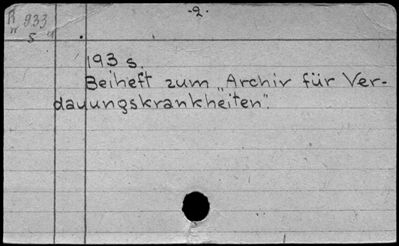 -2-
933
5
193 s.
Beiheft zum „Archiv für Ver-
dauungskrankheiten".